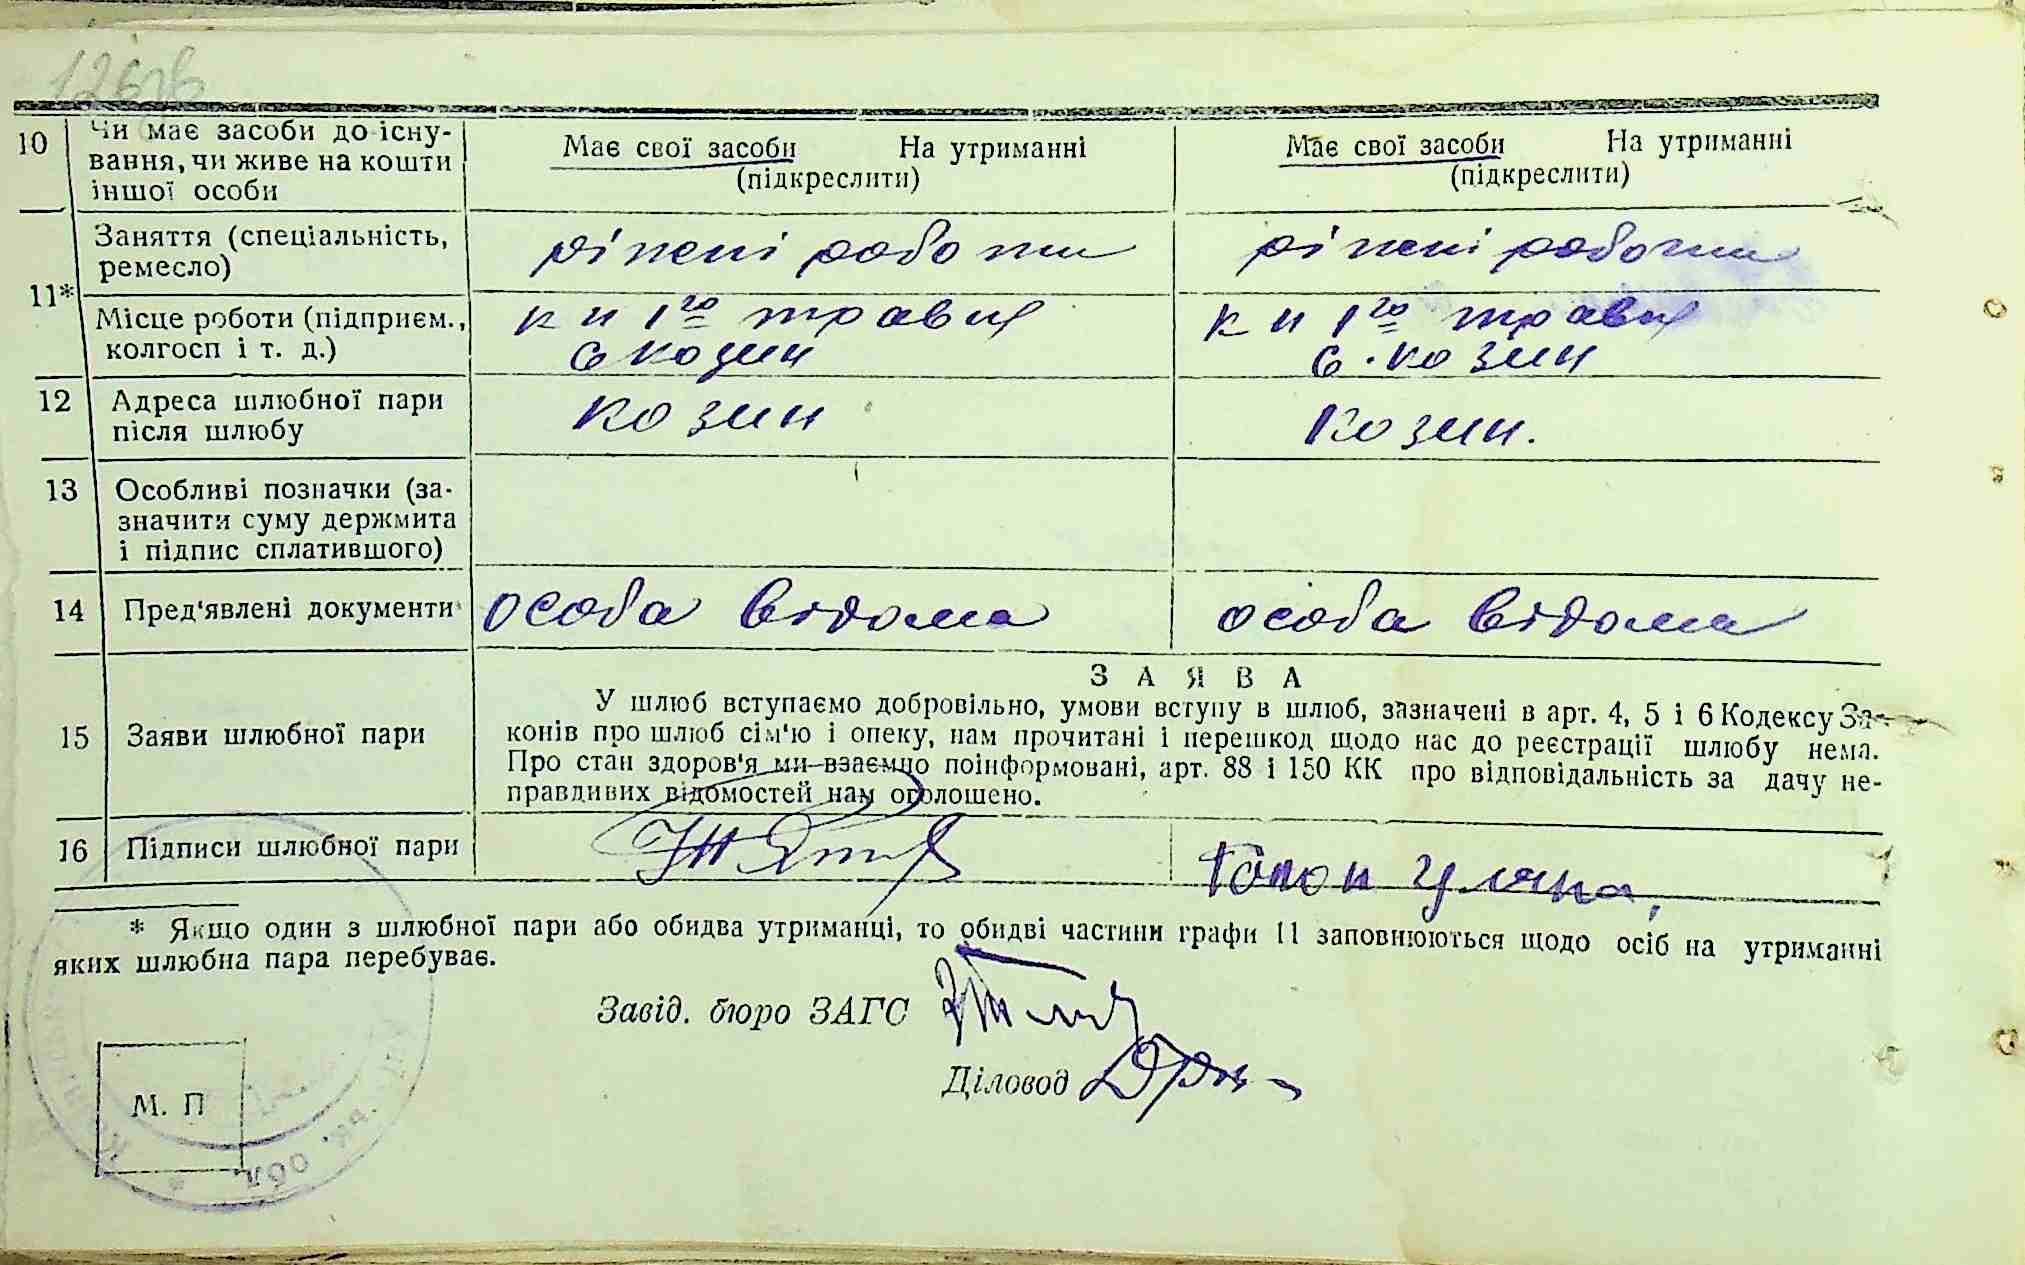 126зв
10 Чи має засоби до існу- Має свої засоби На утриманні Має свої засоби На утриманні
вання, чи живе на кошти (підкреслити) (підкреслити)
іншої особи
11* Заняття (спеціальність, ріжні роботи ріжні роботи
ремесло)
Місце роботи (підприєм., к и 1го травня к и 1го травня
колгосп і т. д.) с козин с. козин
12 Адреса шлюбної пари козин козин.
після шлюбу
13 Особливі позначки (за-
значити суму держмита
і підпис сплатившого)
14 Пред'явлені документи особа відома особа відома
З А Я В А
15 Заяви шлюбної пари У шлюб вступаємо добровільно, умови вступу в шлюб, зазначені в арт. 4, 5 і 6 Кодексу За-
конів про шлюб сім'ю і опеку, нам прочитані і перешкод щодо нас до реєстрації шлюбу нема.
Про стан здоров'я ми взаємно поінформовані, арт. 88 і 150 КК про відповідальність за дачу не-
правдивих відомостей нам оголошено.
16 Підписи шлюбної пари Гапон Уляна,
* Якщо один з шлюбної пари або обидва утриманці, то обидві частини графи 11 заповнюються щодо осіб на утриманні
яких шлюбна пара перебуває.
Завід. бюро ЗАГС
Діловод
М. П
обл.